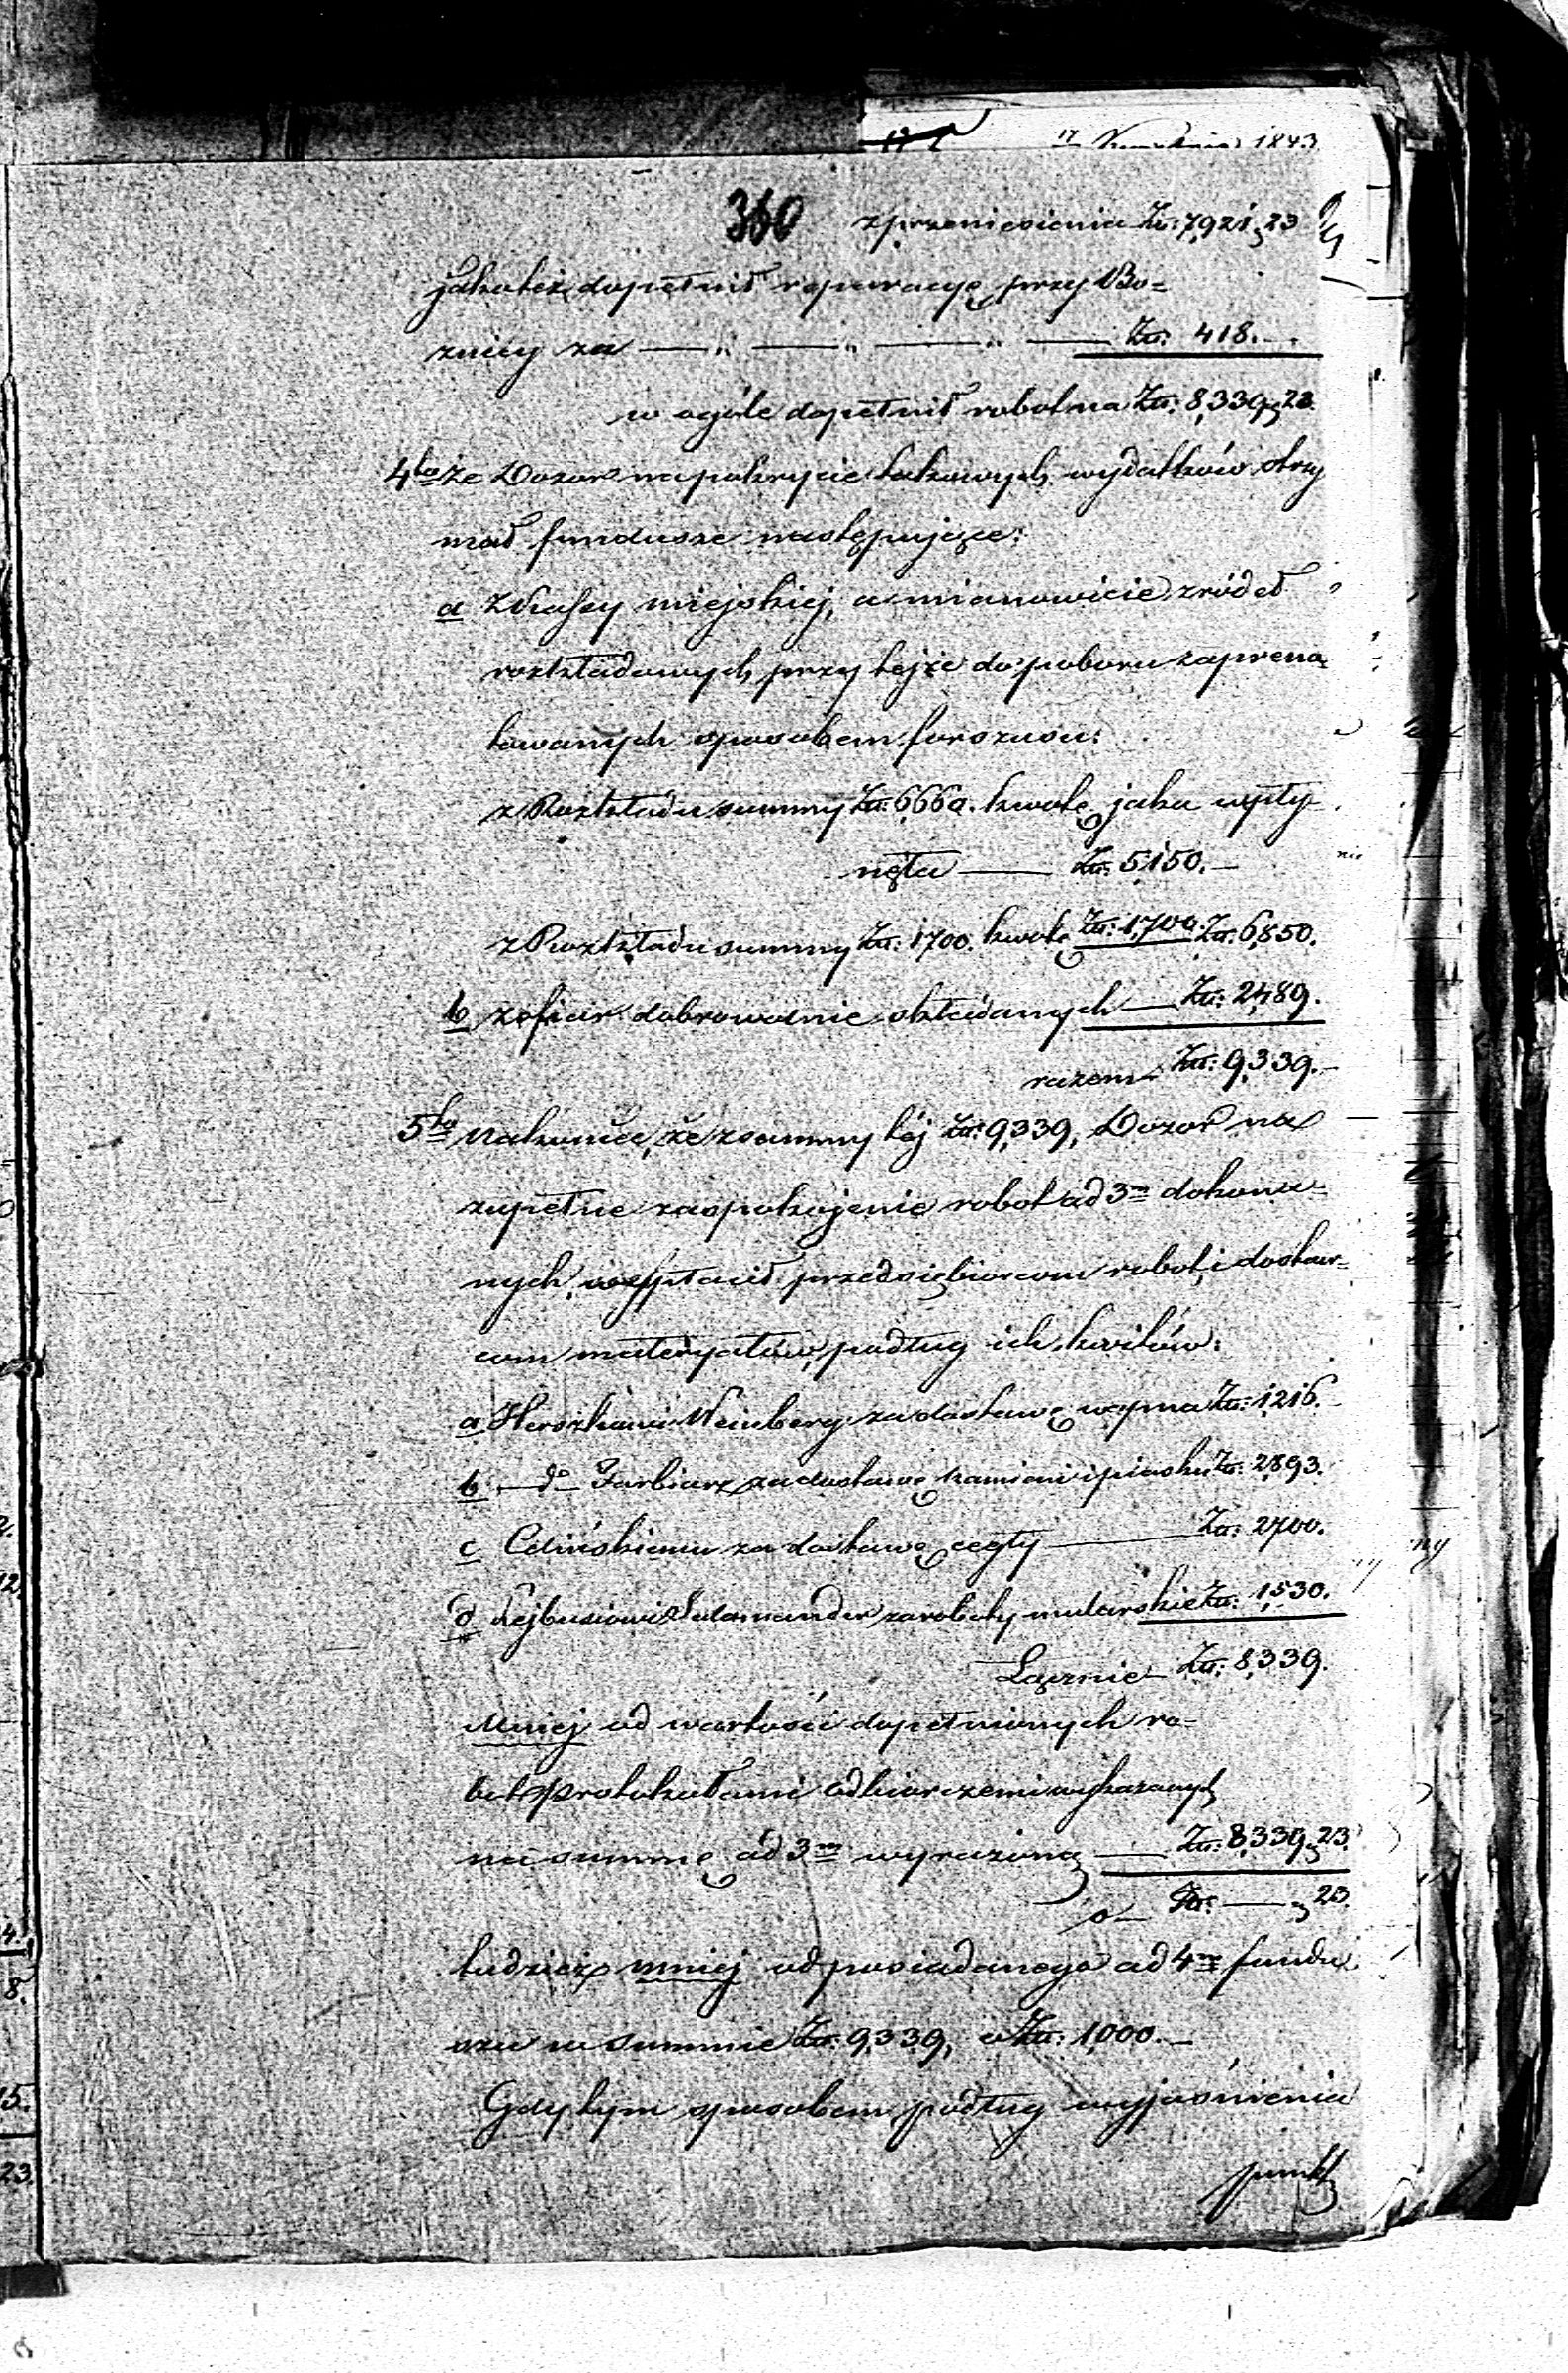 17 Kwietnia 1843
360 z przeniesienia Złł: 7,921 g 23
jakoteż dopełnił reperacyę przy Bo-
żnicy za — „ — „ — „ — Złł: 418. —
w ogóle dopełnił robot na Złł: 8,339 g 23.
4to że Dozor na pokrycie takowych wydatków otrzy
mał fundusze następujące:
a Z Kassy miejskiej, a mianowicie z źródeł
rozkładowych przy tejże do poboru zapreno-
towanych sposobem forszusu:
z Rozkładu summy Złł: 6,660. kwotę jaka wpły-
nęła — Złł: 5,150. —
z Rozkładu summy Złł: 1700. kwotę Złł: 1,700. Złł: 6,850.
b z ofiar dobrowolnie składanych — Złł: 2,489.
razem Złł: 9,339. —
5to Nakoniec, że z summy tej Złł: 9,339, Dozor na
zupełne zaspokojenie robot ad 3m dokona-
nych, wypłacił przedsiębiorcom robot i dostaw-
com materyałów, podług ich kwitów:
a Herszkowi Weinberg za dostawę wapna Złł: 1,216.
b — do — Farbiarz za dostawę kamieni i piasku Złł: 2,893.
c Celińskiemu za dostawę cegły — Złł: 2,700.
d Lejbusiowi Salamander za roboty mularskie Złł: 1,530.
Łącznie Złł: 8,339.
Mniej od wartości dopełnionych ro-
bot Protokołami odbiorczemi wykazanych
na summę ad 3m wyrażoną — Złł: 8,339 g 23.
o — Złł: — g 23.
tudzież mniej od posiadanego ad 4m fundu
szu w summie Złł: 9,339, o Złł: 1,000. —
Gdy tym sposobem podług wyjaśnienia
punkt